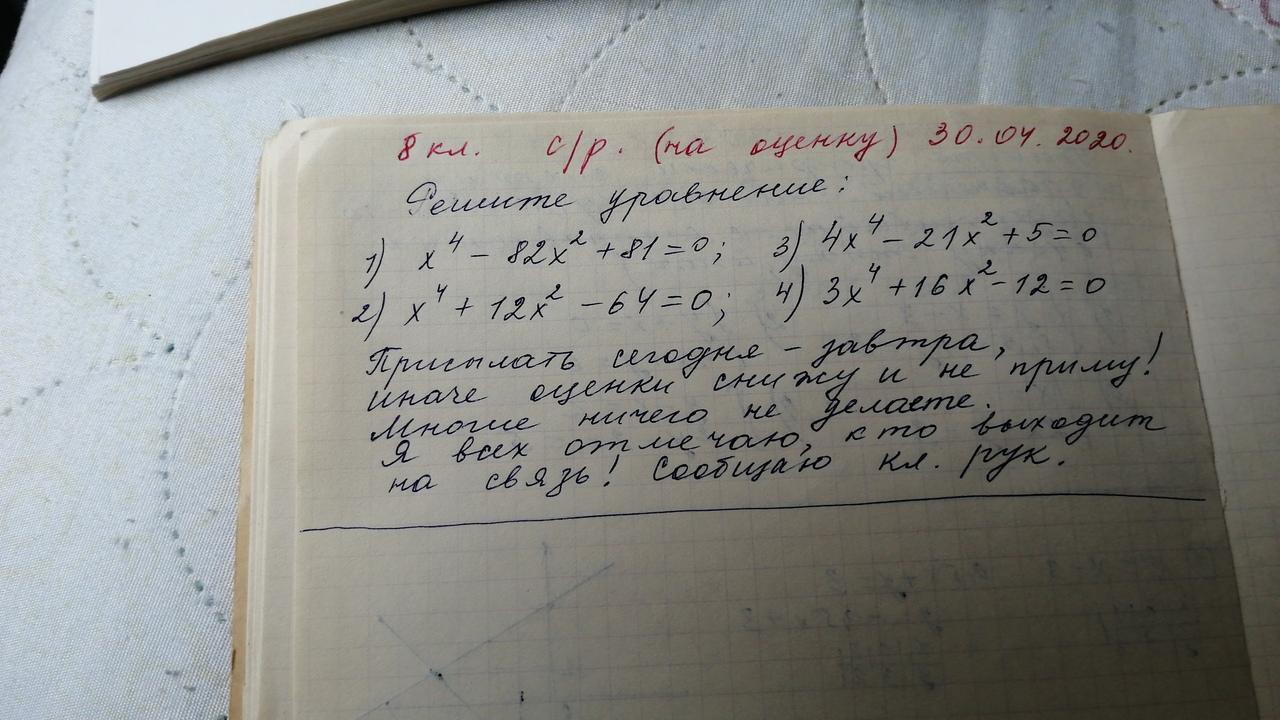 8 кл. с/р. (на оценку) 30.04.2020.
Решите уравнение:
1) x⁴ - 82x² + 81 = 0; 3) 4x⁴ - 21x² + 5 = 0
2) x⁴ + 12x² - 64 = 0; 4) 3x⁴ + 16x² - 12 = 0
Присылать сегодня - завтра,
иначе оценки снижу и не приму!
Многие ничего не делаете.
Я всех отмечаю, кто выходит
на связь! Сообщаю кл. рук.